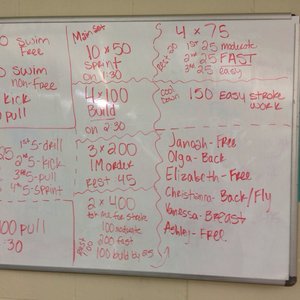 0 swim
Free
0 swim
non-free
kick
pull
25 1st 5-drill
3rd 5-kick
4th 5-sprint
100 pull
:30
Main set
10 x 50
sprint
on 1:30
4 x 100
Build
on 2:30
3 x 200
IM order
rest 45
2 x 400
100 moderate
200 fast
100 build by 25
4 x 75
rest 20
1st 25 moderate
2nd 25 FAST
3rd 25 easy
cool down
150 Easy stroke
work
Janash-Free
Olga-Back
Elizabeth-Free
Christianna-Back/Fly
Vanessa-Breast
Ashley-Free